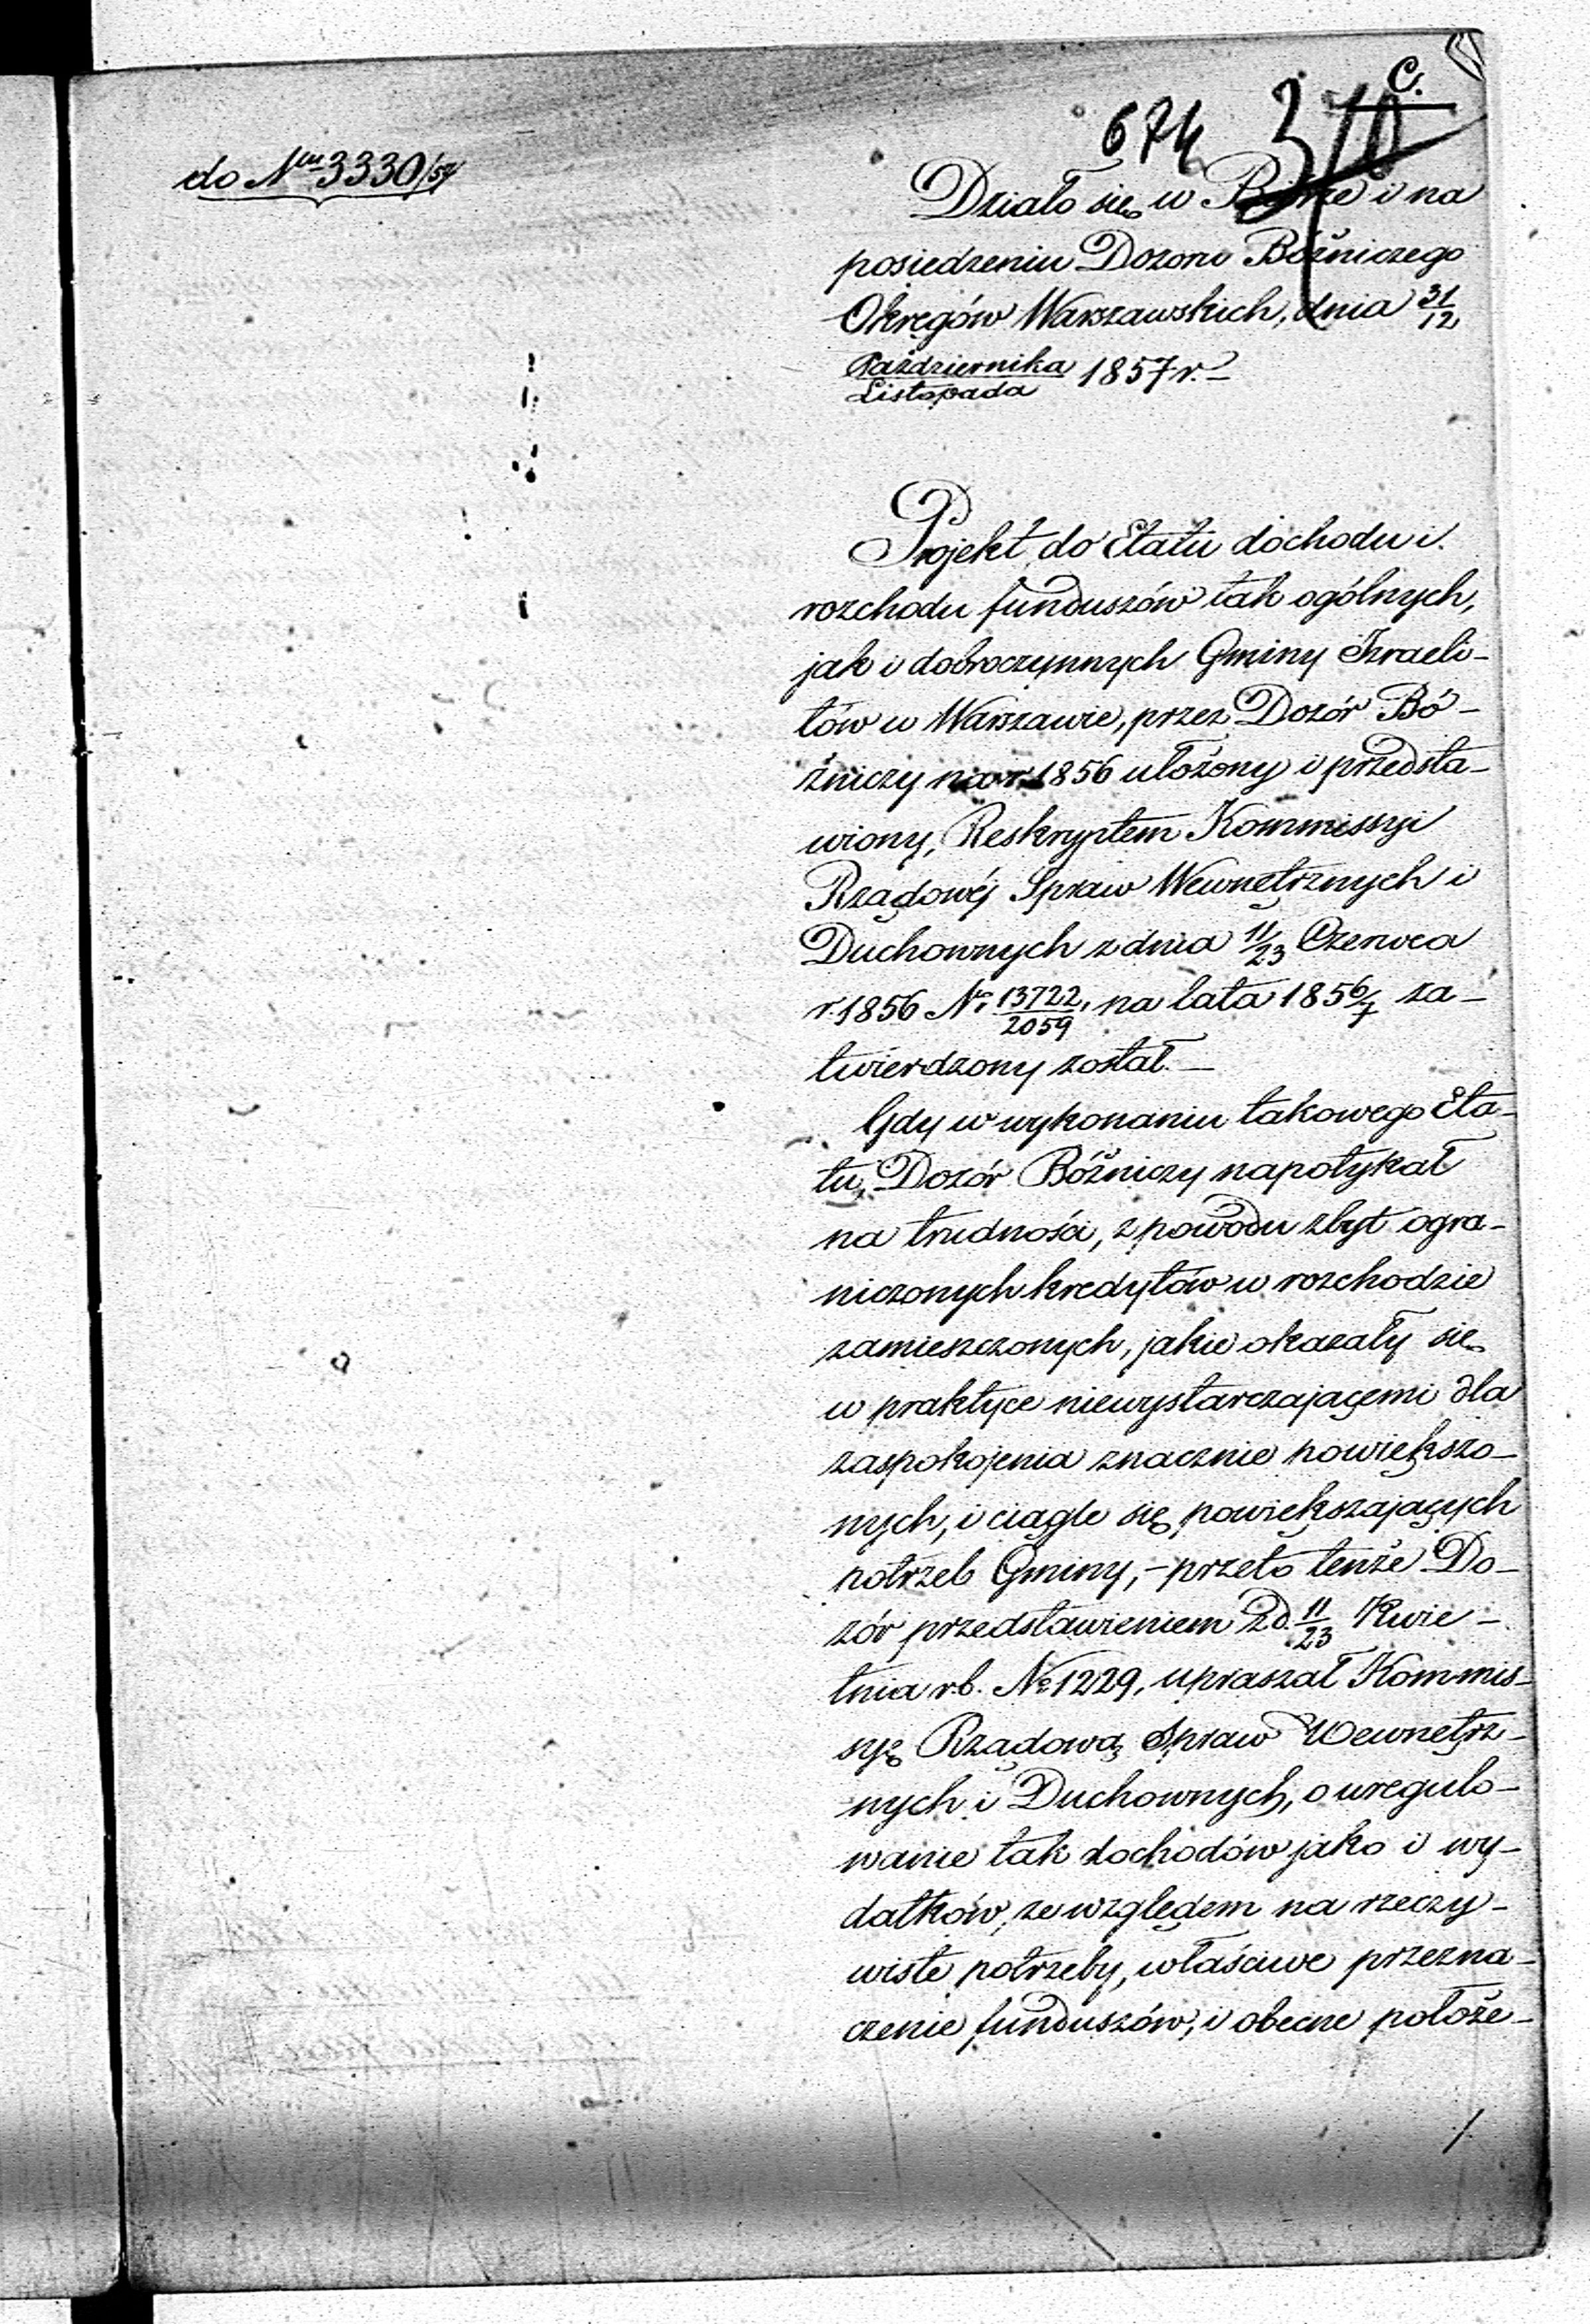 C.
674 310
do Nru 3330/57
Działo się w Biórze i na
posiedzeniu Dozoru Bóżniczego
Okręgów Warszawskich, dnia 31/12
Października/Listopada 1857 r.
Projekt do Etatu dochodu i
rozchodu funduszów tak ogólnych,
jak i dobroczynnych Gminy Izraeli-
tów w Warszawie, przez Dozór Bó-
żniczy na r. 1856 ułożony i przedsta-
wiony, Reskryptem Kommissyi
Rządowéj Spraw Wewnętrznych i
Duchownych z dnia 11/23 Czerwca
r. 1856 No 13722/2059, na lata 1856/7 za-
twierdzony został. —
Gdy w wykonaniu takowego Eta-
tu, Dozór Bóżniczy napotykał
na trudności, z powodu zbyt ogra-
niczonych kredytów w rozchodzie
zamieszczonych, jakie okazały się
w praktyce niewystarczającemi dla
zaspokojenia znacznie powiększo-
nych, i ciągle się powiększających
potrzeb Gminy, – przeto tenże Do-
zór przedstawieniem z d. 11/23 Kwie-
tnia r.b. No 1229, upraszał Kommis-
syę Rządową Spraw Wewnętrz-
nych i Duchownych, o uregulo-
wanie tak dochodów jako i wy-
datków, ze względem na rzeczy-
wiste potrzeby, właściwe przezna-
czenie funduszów, i obecne położe-